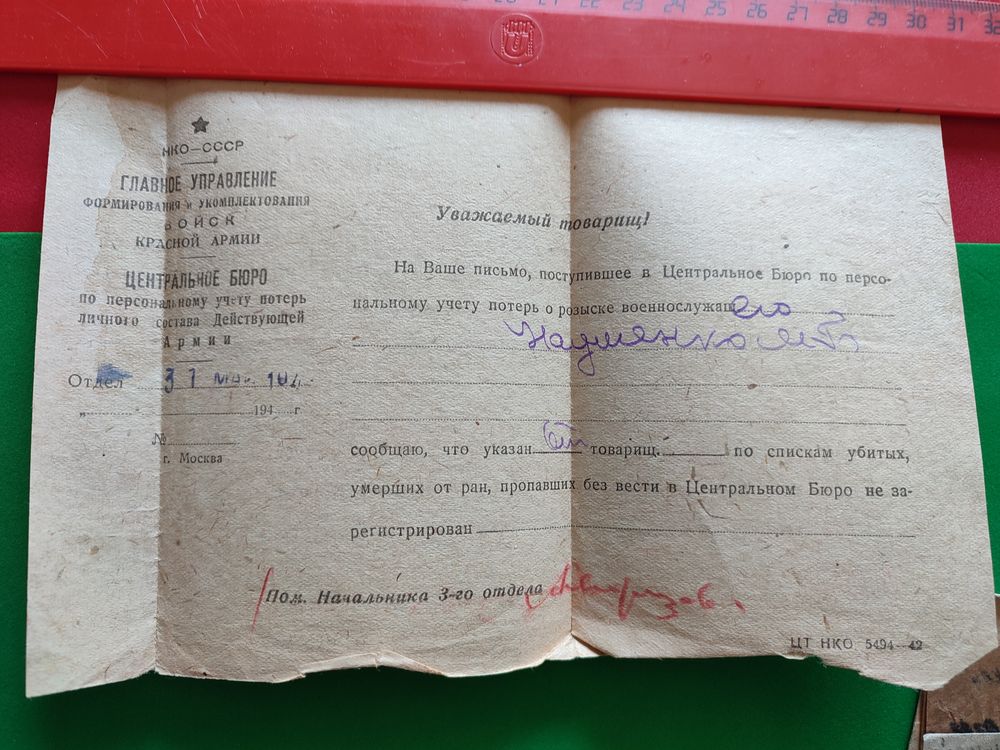 25 26 27 28 29 30 31 32
НКО—СССР
ГЛАВНОЕ УПРАВЛЕНИЕ
ФОРМИРОВАНИЯ и УКОМПЛЕКТОВАНИЯ
ВОЙСК
КРАСНОЙ АРМИИ
ЦЕНТРАЛЬНОЕ БЮРО
по персональному учету потерь
личного состава Действующей
Армии
Отдел 31
„ 194 г
№
г. Москва
Уважаемый товарищ!
На Ваше письмо, поступившее в Центральное Бюро по персо-
нальному учету потерь о розыске военнослужащего
сообщаю, что указан товарищ. по спискам убитых,
умерших от ран, пропавших без вести в Центральном Бюро не за-
регистрирован
Пом. Начальника 3-го отдела
ЦТ НКО 5494—42